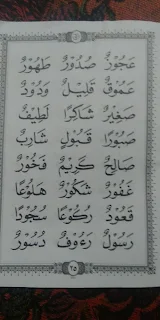 عَجُوْزٌ صُدُوْرٌ طَهُوْرٌ
عَمُوْقٌ قَلِيْلٌ وَدُوْدٌ
صَغِيْرٌ شَاكِرًا لَطِيْفٌ
صَبُوْرًا قَبُوْلٌ شَارِبٌ
صَالِحٌ كَرِيْمٌ فَخُوْرٌ
غَفُوْرٌ شَكُوْرٌ هَلُوْعًا
قَعُوْدٌ رُكُوْعًا سُجُوْدًا
رَسُوْلٌ رَءُوْفٌ دُسُوْرٌ
٢٥